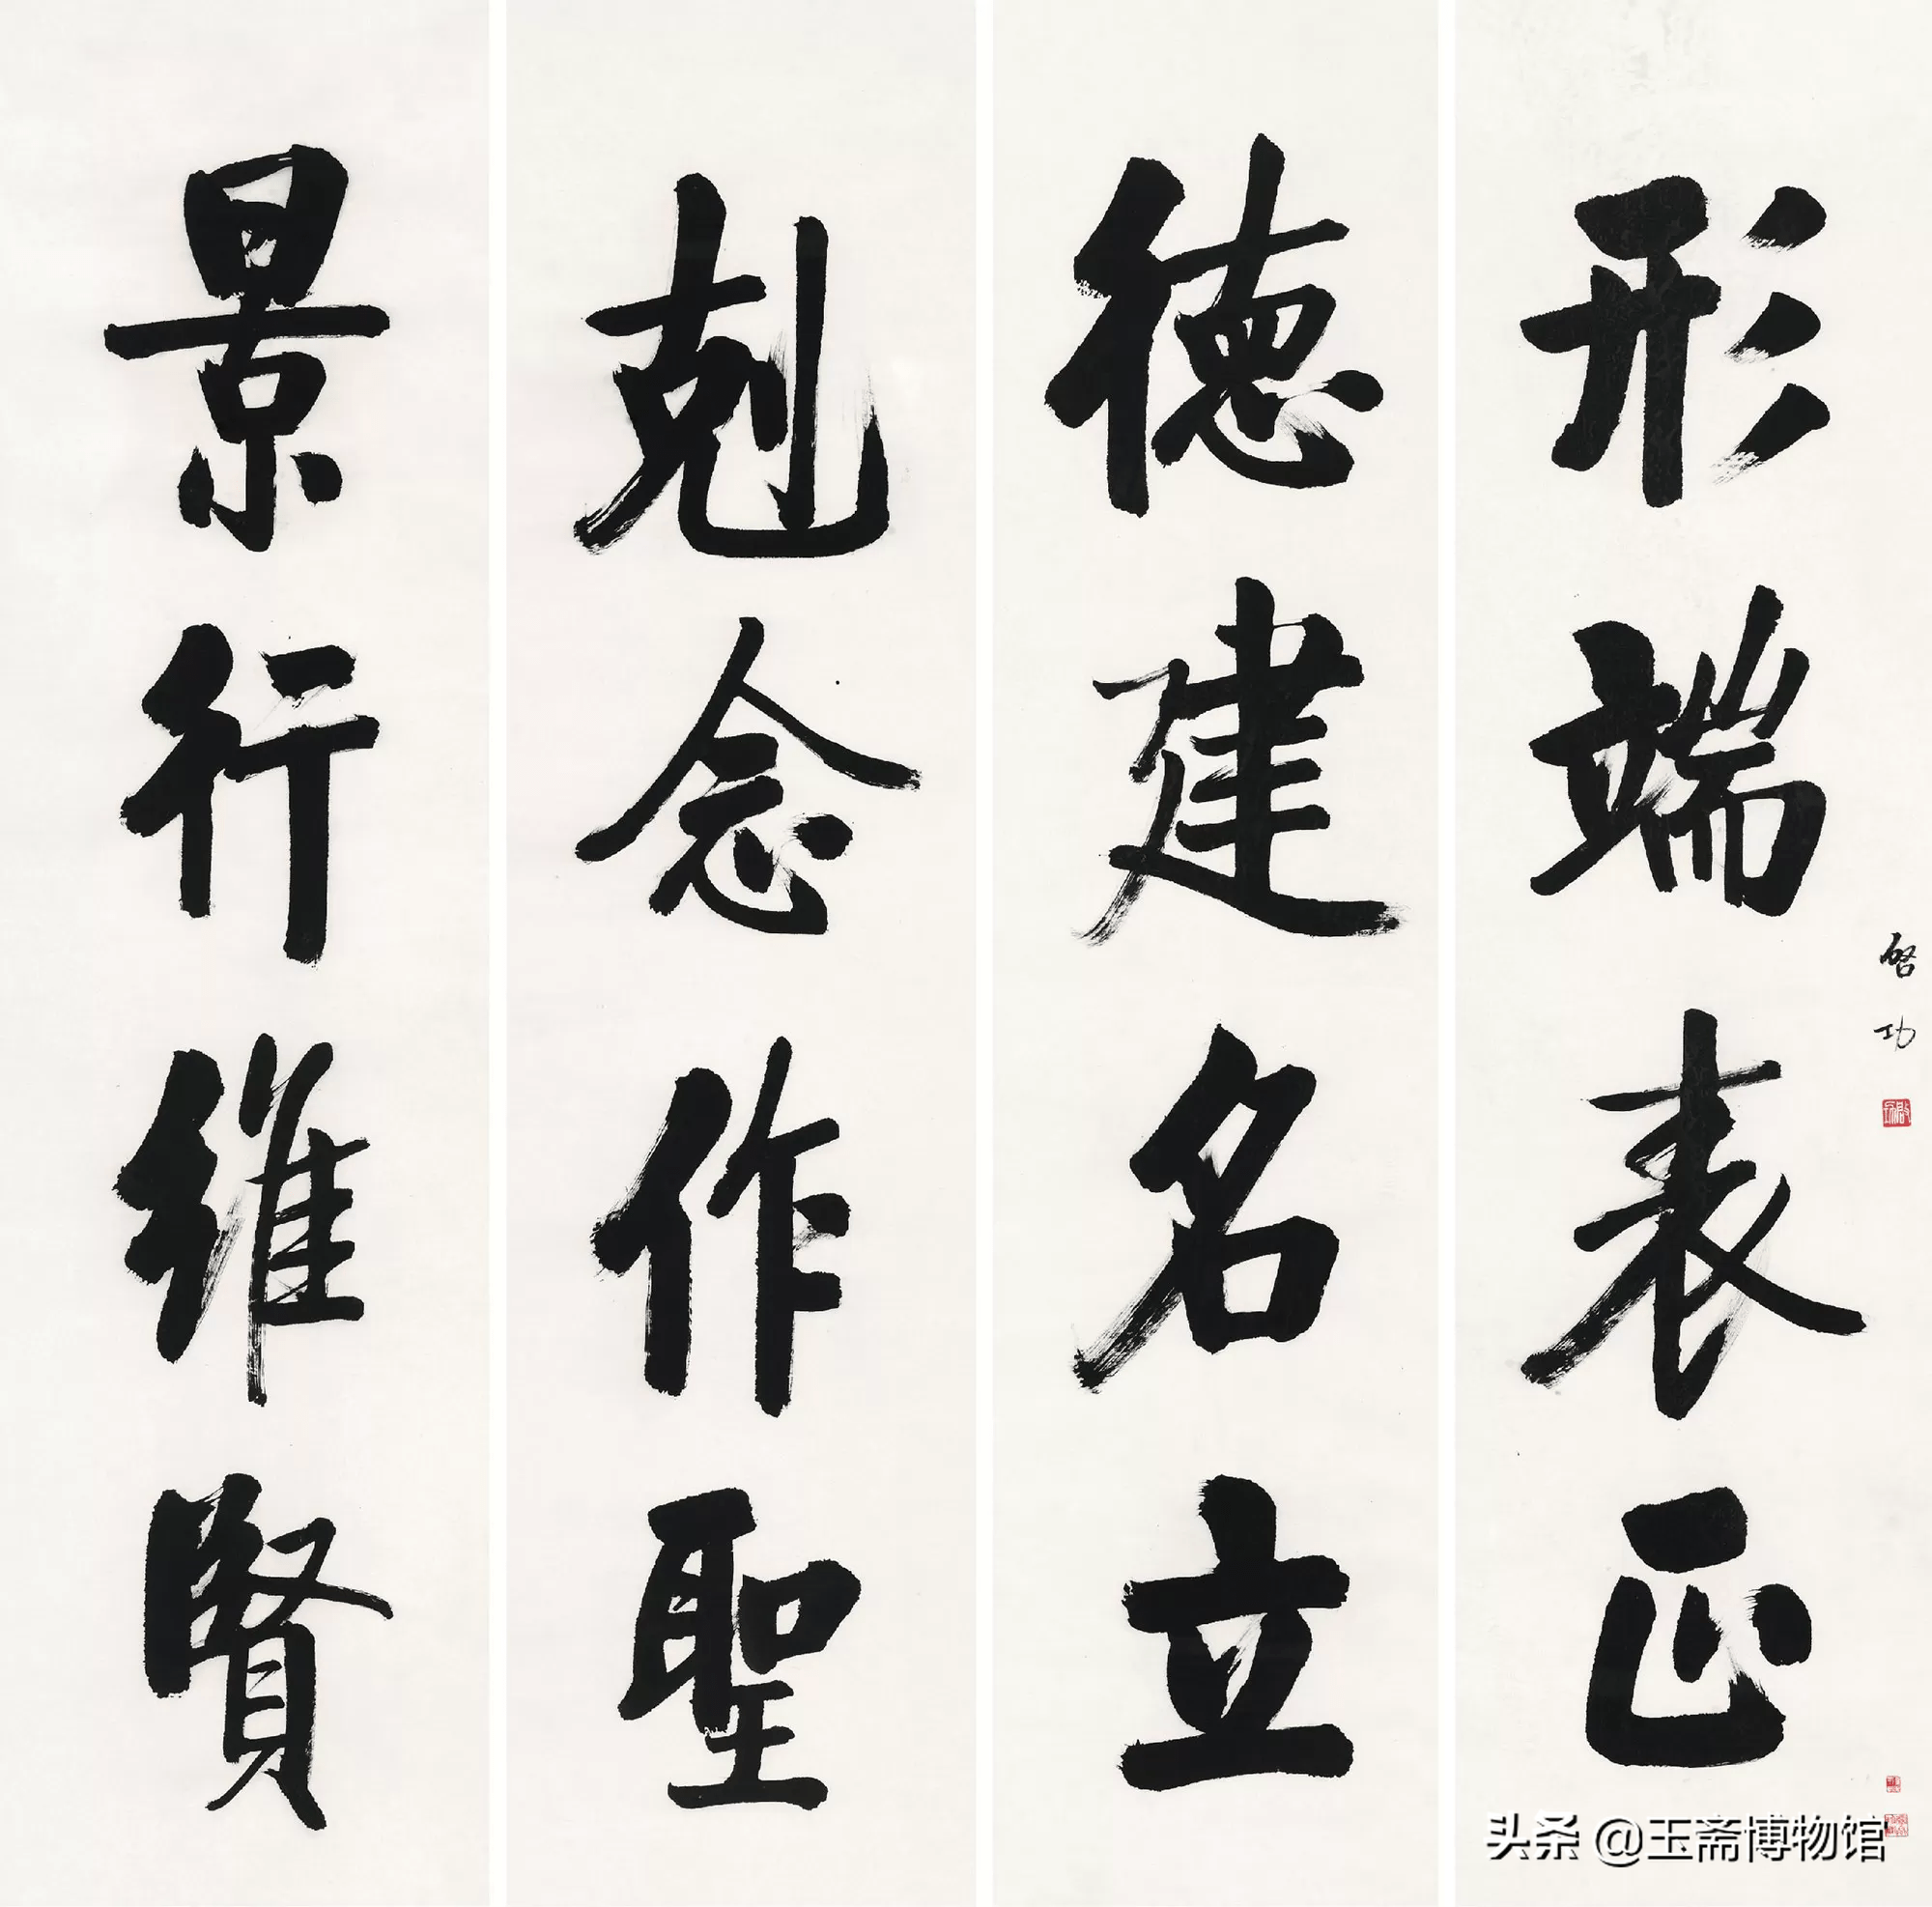 景行維賢
剋念作聖
德建名立
形端表正
啓功
啟功
头条 @玉斋博物馆